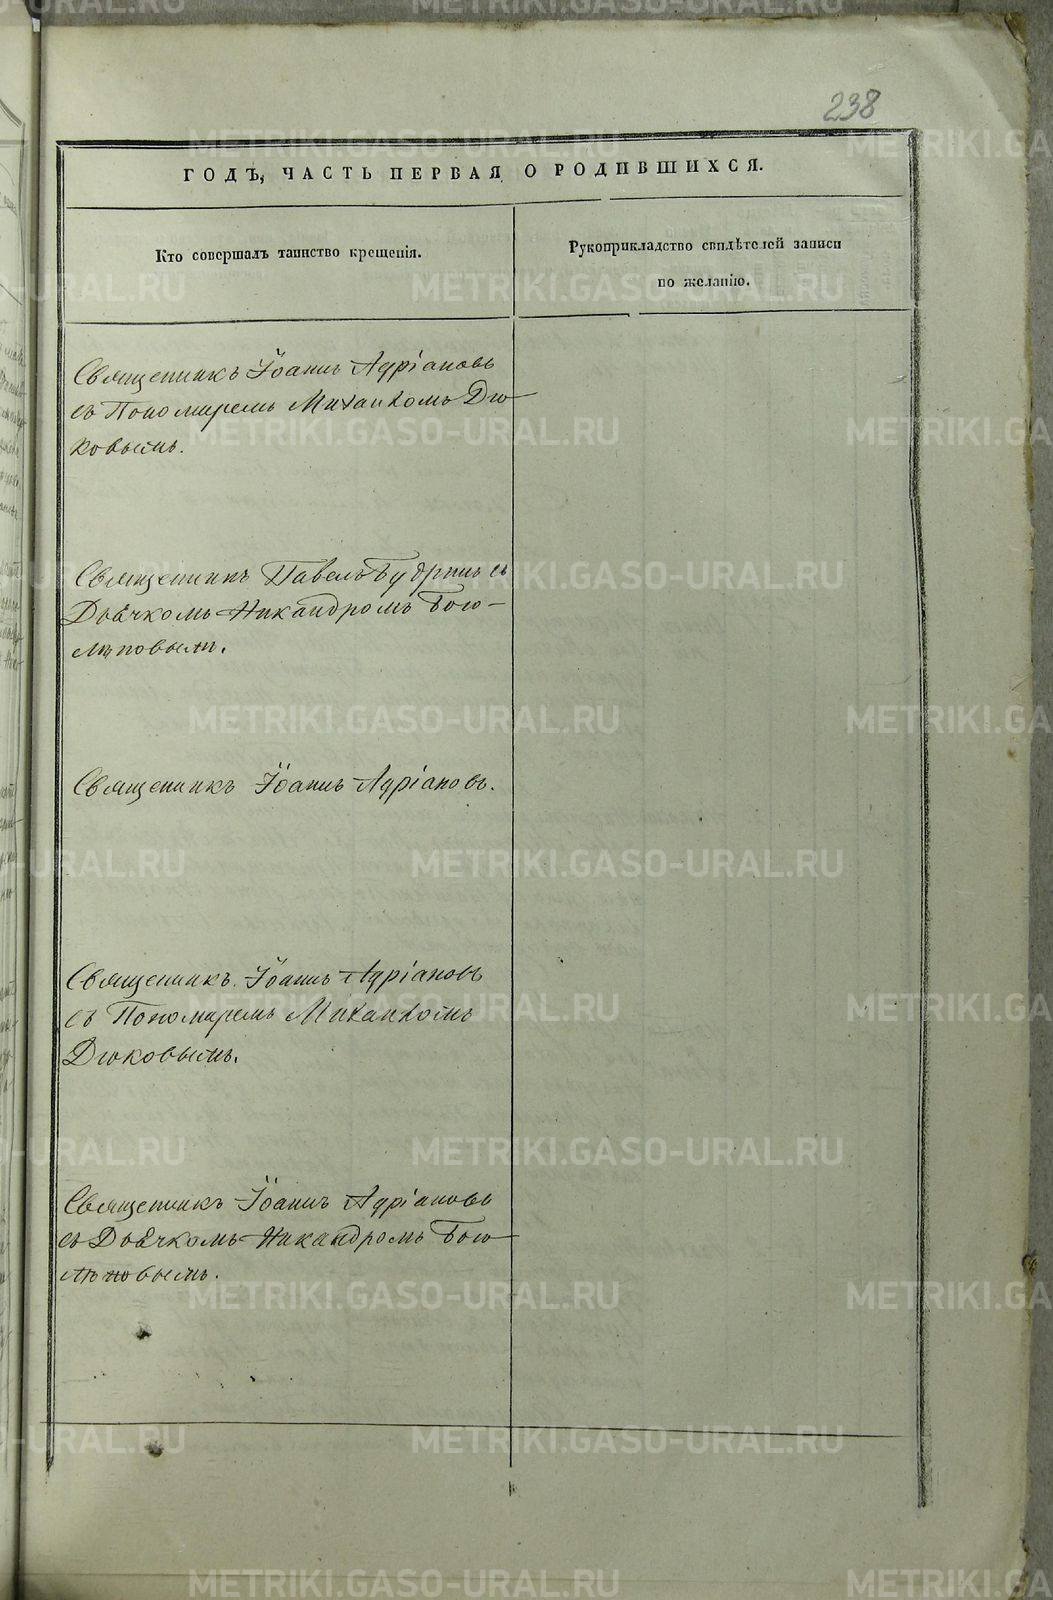 238
ГОДЪ, ЧАСТЬ ПЕРВАЯ О РОДИВШИХСЯ.
Кто совершалъ таинство крещенія.
Рукоприкладство свидѣтелей записи
по желанію.
Священникъ Іоаннъ Адріановъ
съ Пономаремъ Михаиломъ Дю-
ковымъ.
Священникъ Павелъ Будринъ съ
Дьячкомъ Никандромъ Бого-
лѣповымъ.
Священникъ Іоаннъ Адріановъ.
Священникъ Іоаннъ Адріановъ
съ Пономаремъ Михаиломъ
Дюковымъ.
Священникъ Іоаннъ Адріановъ
съ Дьячкомъ Никандромъ Бого-
лѣповымъ.
METRIKI.GASO-URAL.RU